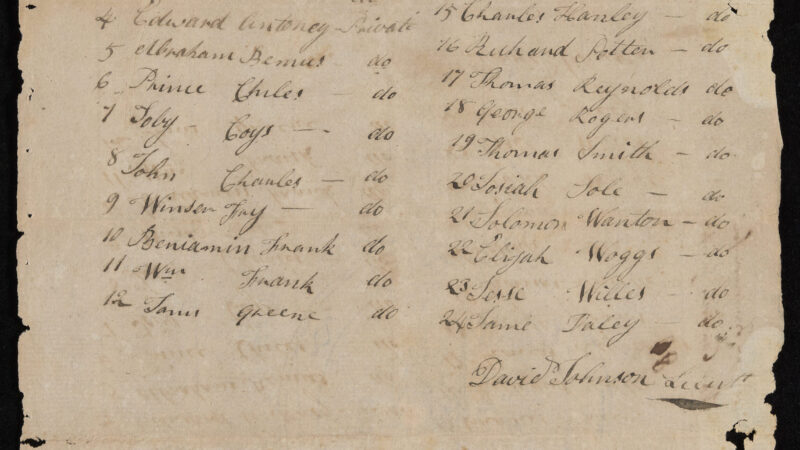 4 Edward Antoney Private
5 Abraham Bemus do
6 Prince Chiles — do
7 Toby Coys — do
8 John Charles — do
9 Winser Fry — do
10 Beniamin Frank do
11 Wm Frank do
12 Greene do
15 Charles Hanley — do
16 Richard Potter — do
17 Thomas Reynolds do
18 George Rogers — do
19 Thomas Smith — do
20 Josiah Sole — do
21 Solomon Wanton — do
22 Elijah Woggs — do
23 Jesse Willes — do
24 Same Faley — do
David Johnson Lieut